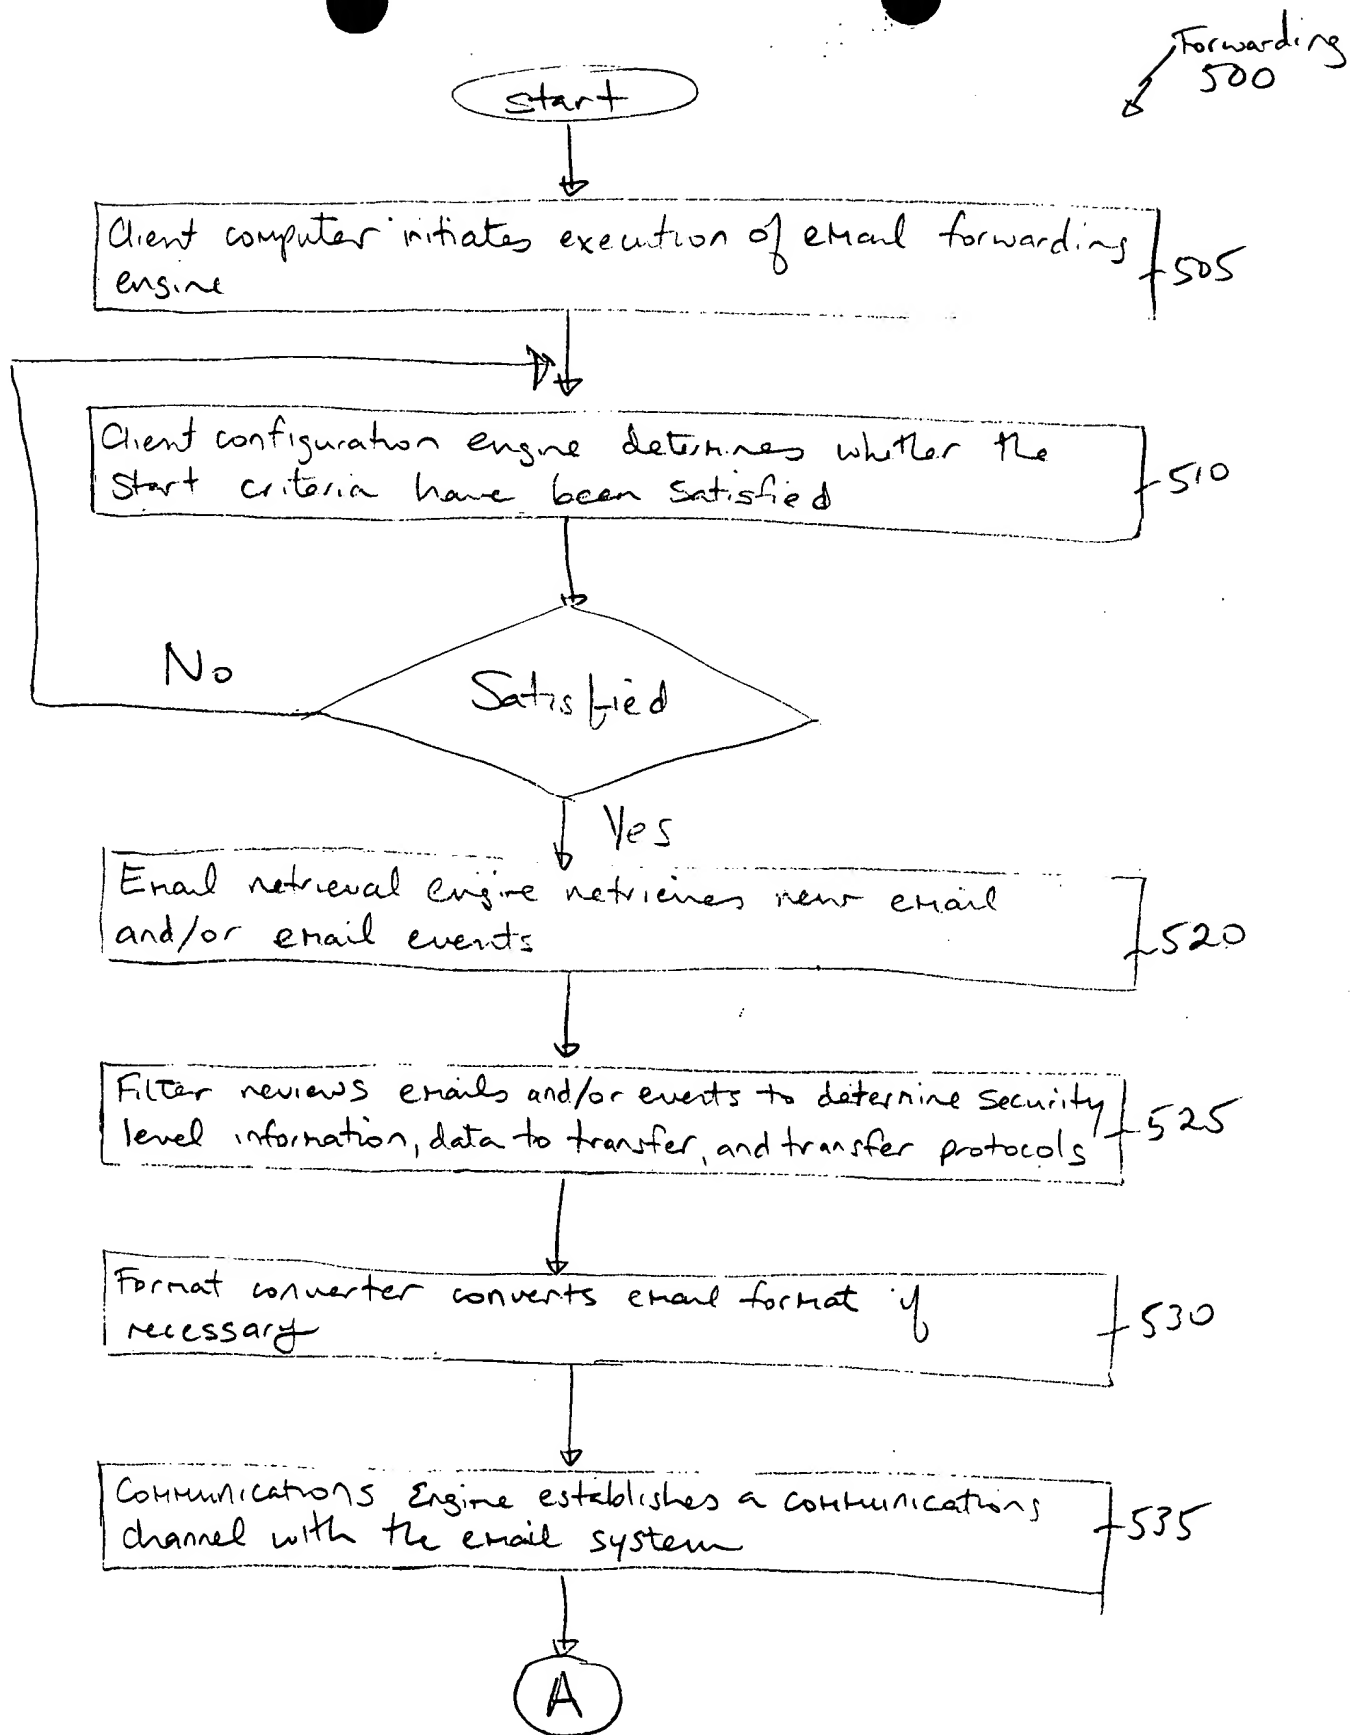 Forwarding
500
start
Client computer initiates execution of email forwarding
engine
505
Client configuration engine determines whether the
start criteria have been satisfied
510
Satisfied
No
Yes
Email retrieval engine retrieves new email
and/or email events
520
Filter reviews emails and/or events to determine security
level information, data to transfer, and transfer protocols
525
Format converter converts email format if
necessary
530
Communications Engine establishes a communications
channel with the email system
535
A